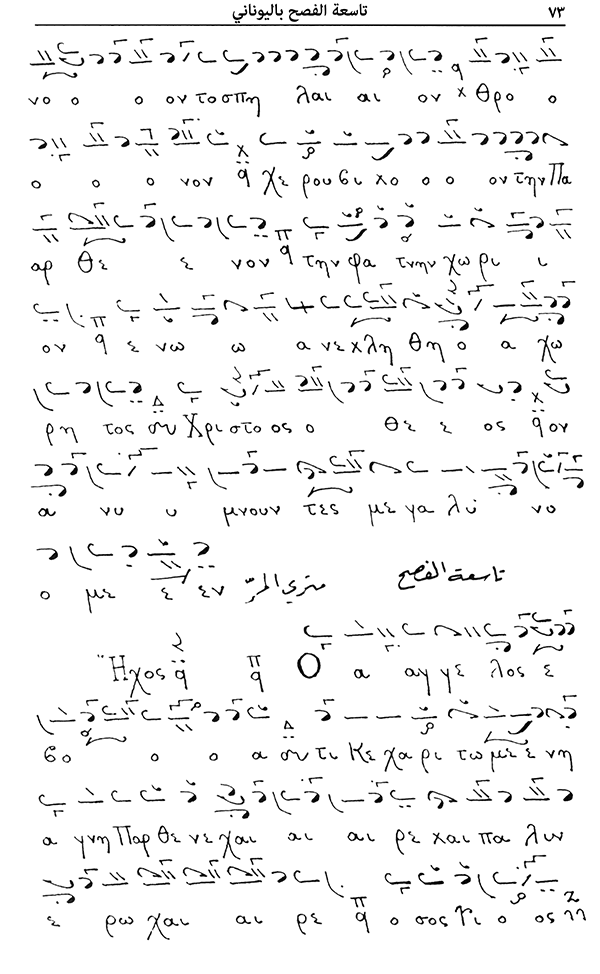 ٧٣ تاسعة الفصح باليوناني
νο ο ο οντοσπη λαι αι ον θρο ο
ο ο ο νον χε ρουβι χο ο ο οντηνΠα
αρ θε ε νον την φα τνην χω ρι ι
ον ε νω ω α νεχλη θη ο α χω
ρη τος ου Χριστο ος ο θε ε ος ον
α νυ υ μνουν τες με γα λύ νο
ο με ε εν متري المرّ تاسعة الفصح
"Ηχος Ο α αγ γε λος ε
βο ο ο α ου τι Κε χα ρι τω με ε νη
α γνηΠαρ θε νε χαι αι αι ρε χαι πα λιν
ε ρω χαι αι ρε ο σος Υι ο ος